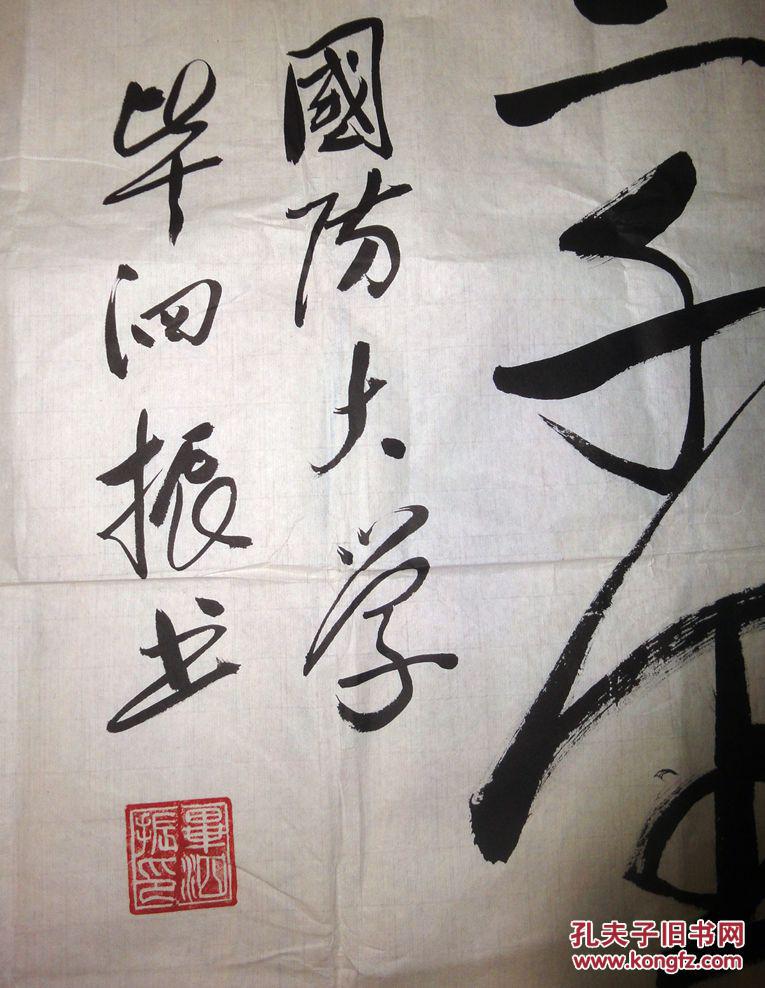 子
國防大学
毕泗振书
畢泗
振印
孔夫子旧书网
www.kongfz.com